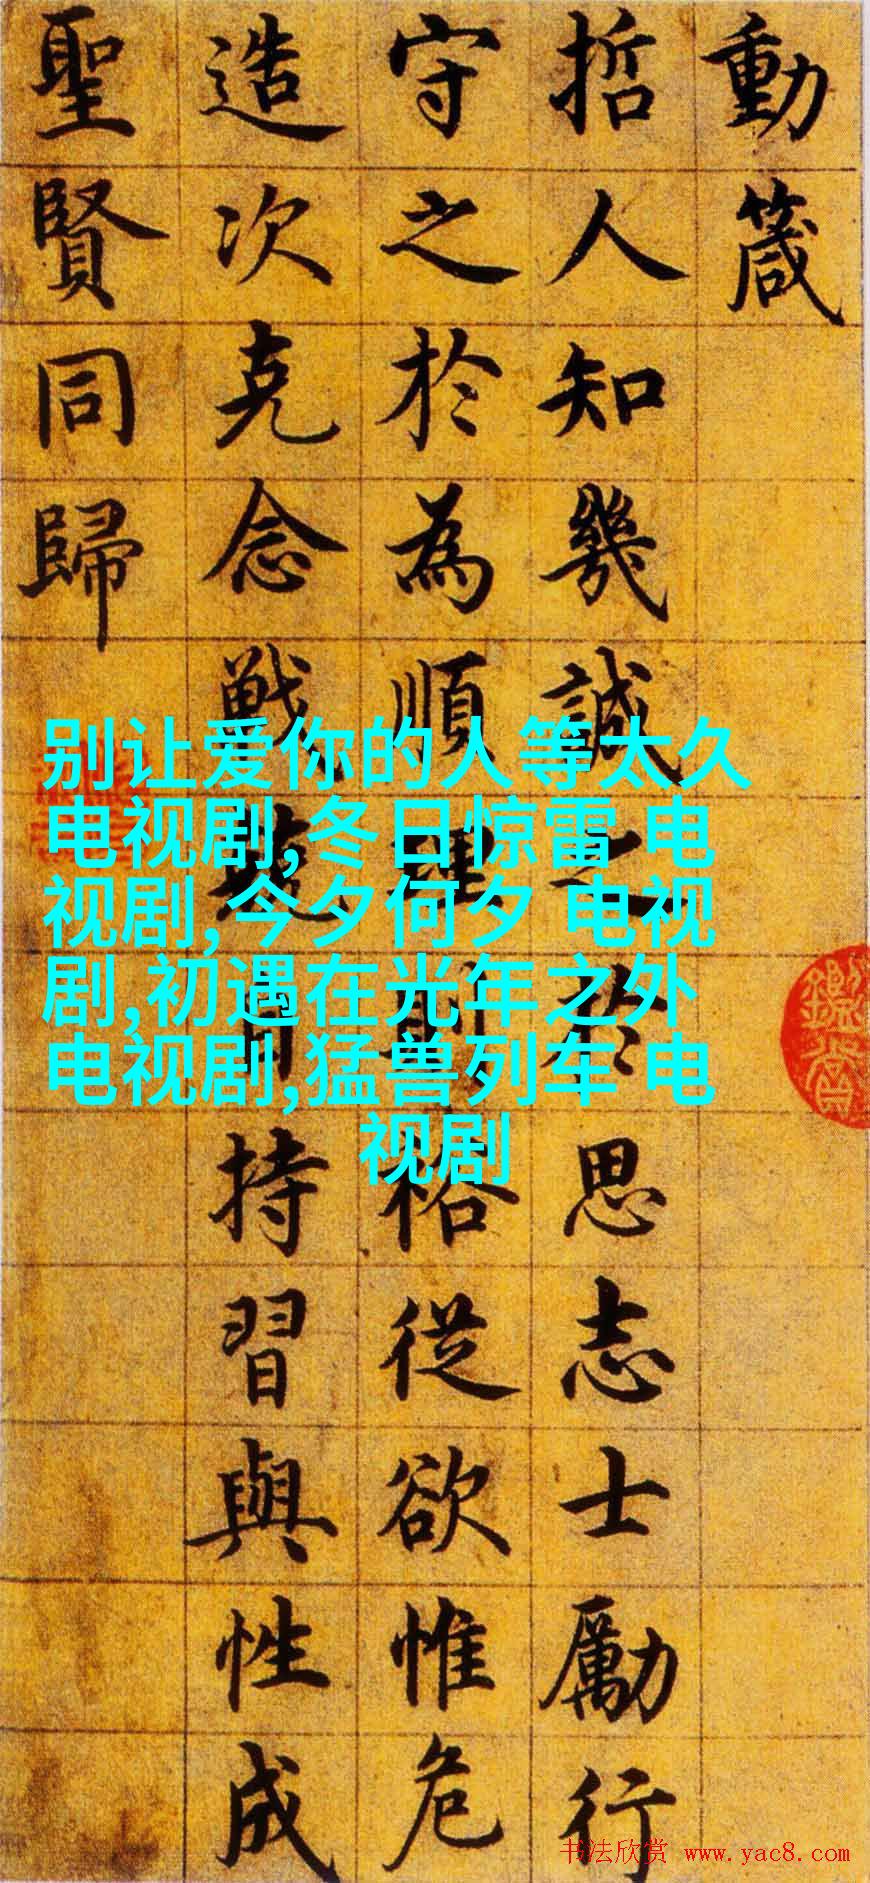 動箴
哲人知幾誠之於思志士勵行
守之於為順理則裕從欲惟危
造次克念戰兢自持習與性成
聖賢同歸
别让爱你的人等太久
电视剧,冬日惊雷 电
视剧,今夕何夕 电视
剧,初遇在光年之外
电视剧,猛兽列车 电
视剧
书法欣赏 www.yac8.com